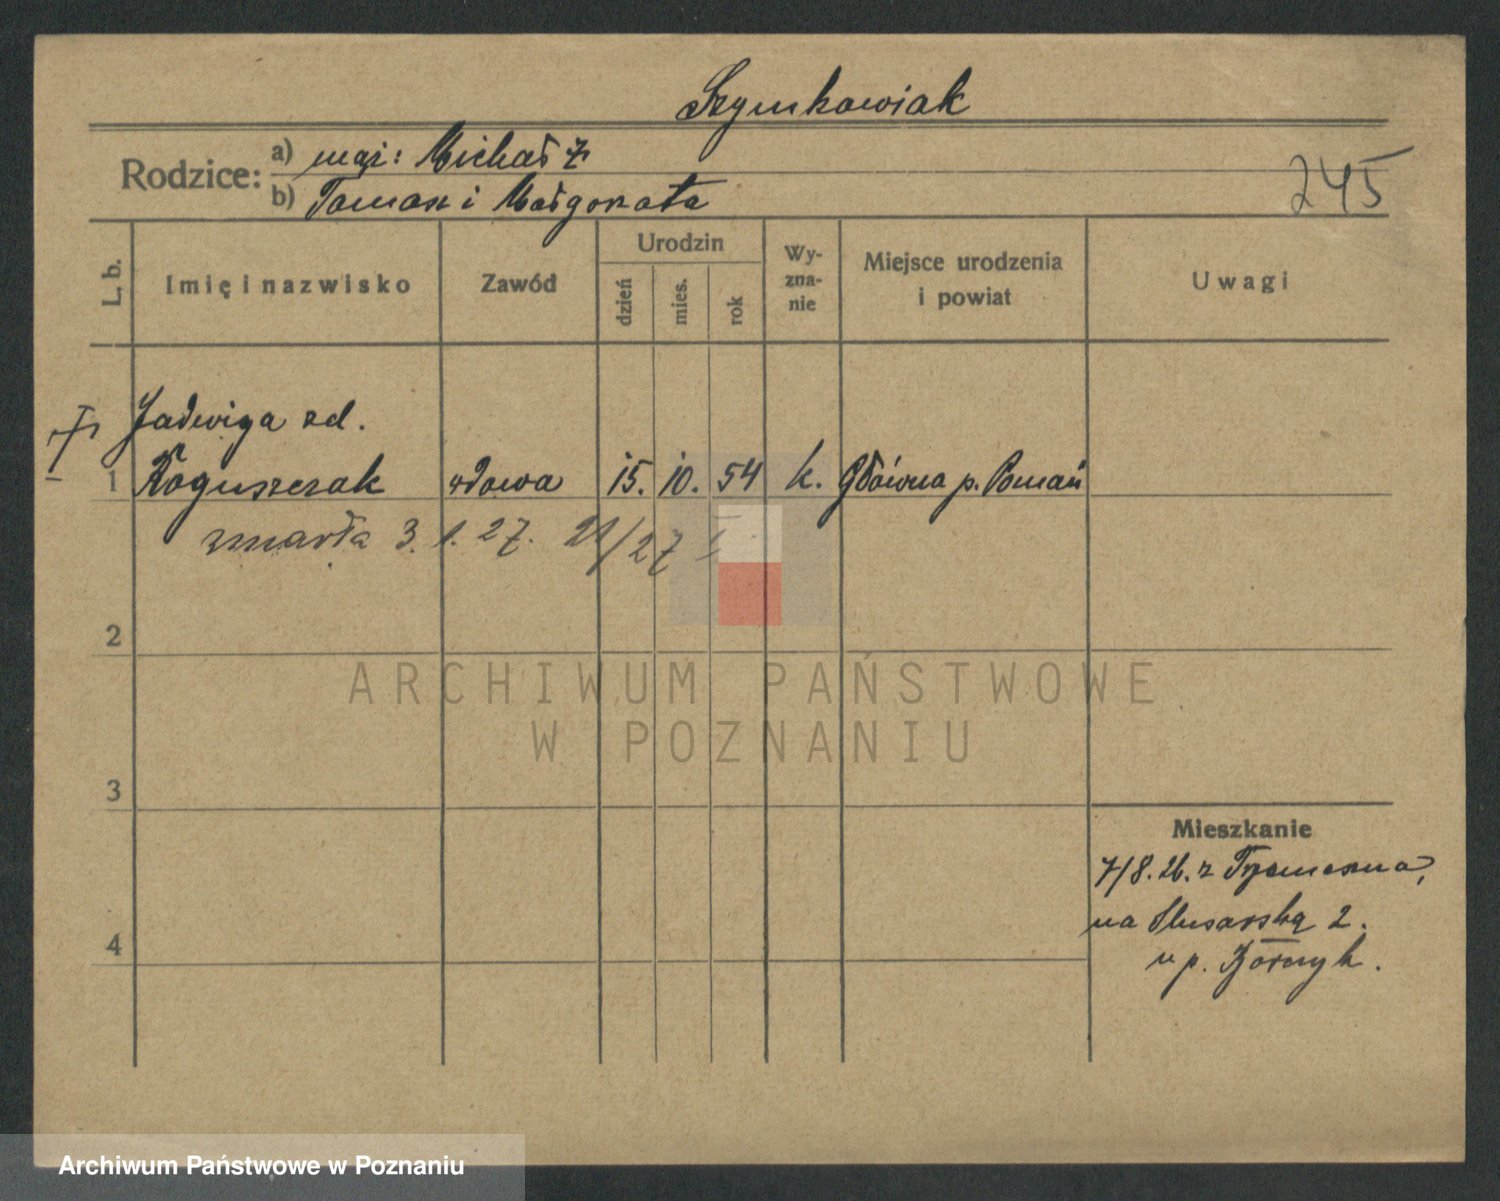 Szymkowiak
Rodzice: a) mąż: Michał
b) Tomasz i Małgorzata
245
L. b.
Imię i nazwisko
Zawód
Urodzin
dzień
mies.
rok
Wy-
zna-
nie
Miejsce urodzenia
i powiat
Uwagi
Jadwiga zd.
1 Roguszczak wdowa 15. 10. 54 k. Główna p. Poznań
zmarła 3. 1. 27. 21/27 I
2
3
4
Mieszkanie
7/8. 26. z Trzemeszna,
na Ślusarską 2.
u p.
ARCHIWUM PAŃSTWOWE
W POZNANIU
Archiwum Państwowe w Poznaniu